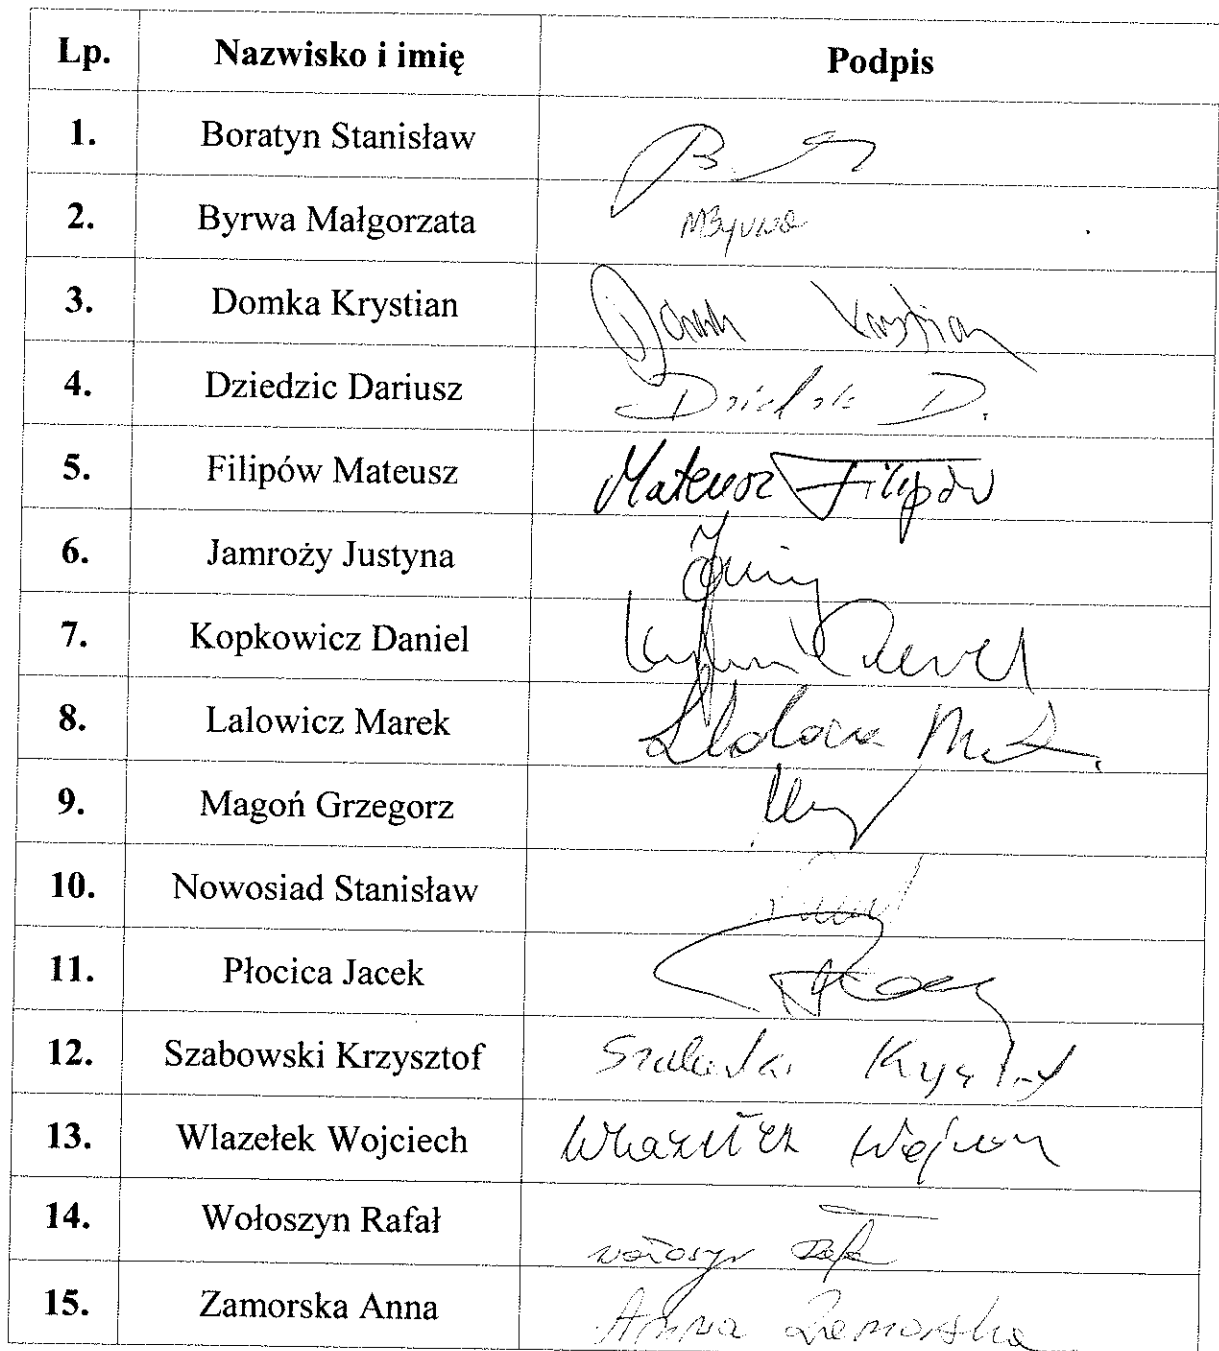 Lp. Nazwisko i imię Podpis
1. Boratyn Stanisław
2. Byrwa Małgorzata MByrwa
3. Domka Krystian Krystian
4. Dziedzic Dariusz D.
5. Filipów Mateusz Mateusz Filipów
6. Jamroży Justyna
7. Kopkowicz Daniel
8. Lalowicz Marek
9. Magoń Grzegorz
10. Nowosiad Stanisław
11. Płocica Jacek
12. Szabowski Krzysztof
13. Wlazełek Wojciech
14. Wołoszyn Rafał
15. Zamorska Anna Anna Zamorska